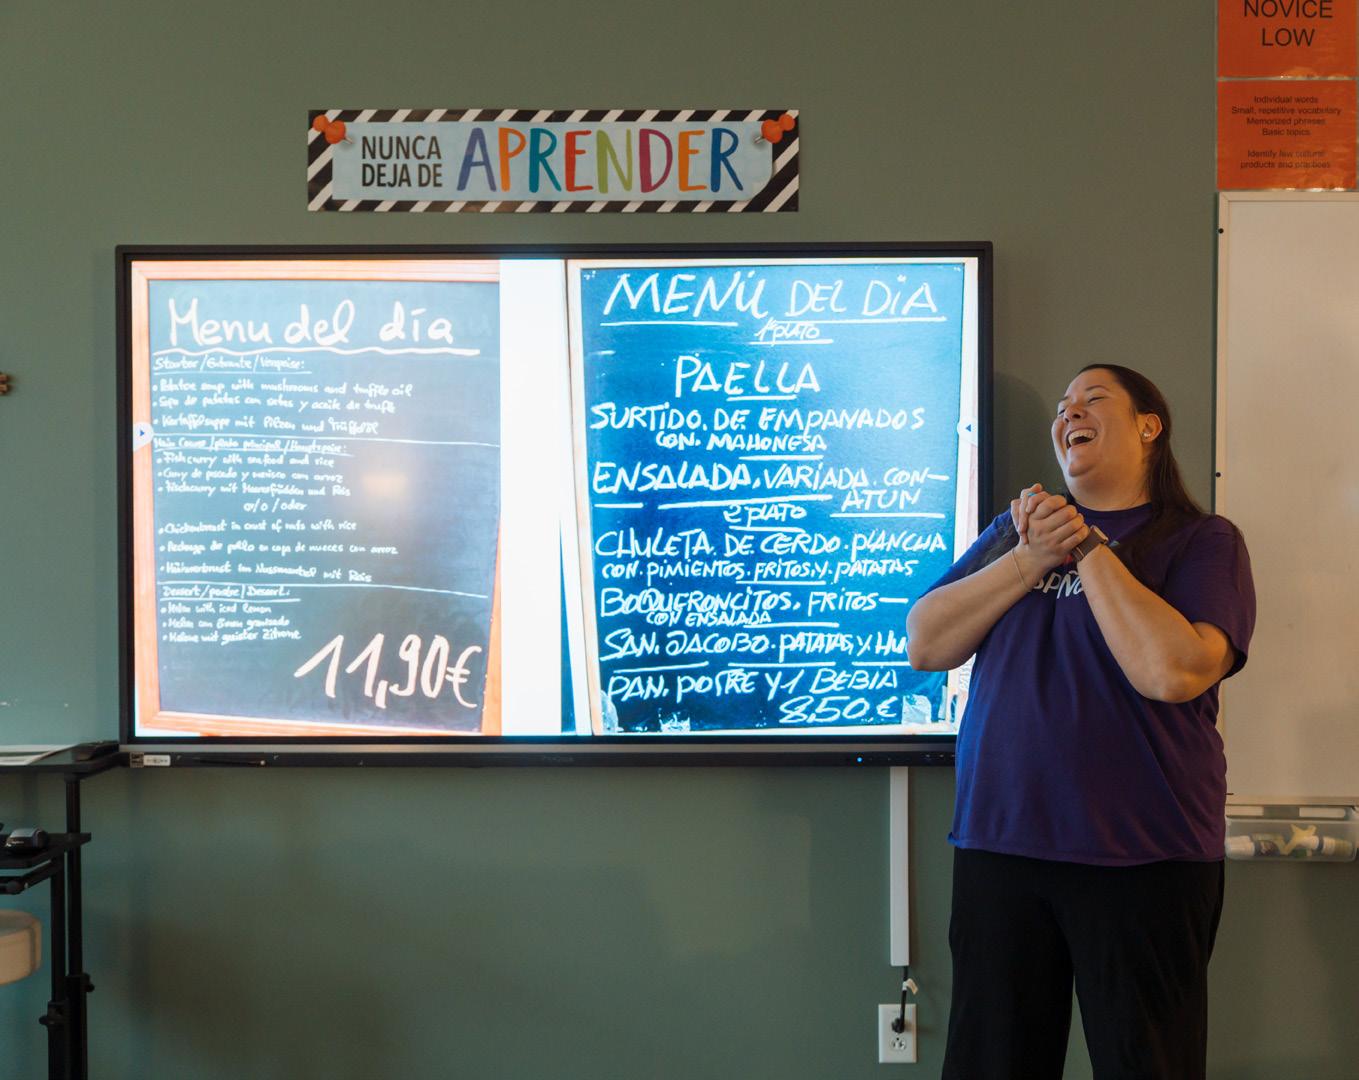 NUNCA
DEJA DE
APRENDER
NOVICE
LOW
Individual words
Small, repetitive vocabulary
Memorized phrases
Basic topics
Identify few cultural
products and practices
Menu del día
Starter/Entrante/Vorspeise:
• Potatoe soup with mushrooms and truffle oil
• Sopa de patatas con setas y aceite de trufa
• Kartoffelsuppe mit Pilzen und Trüffelöl
Main Course/plato principal/Hauptspeise:
• Fishcurry with seafood and rice
• Curry de pescado y marisco con arroz
• Fischcurry mit Meeresfrüchten und Reis
or/o/oder
• Chickenbreast in crust of nuts with rice
• Pechuga de pollo en capa de nueces con arroz
• Hühnerbrust im Nussmantel mit Reis
Dessert/postre/Dessert:
• Melon with iced lemon
• Melon con limon granizado
• Melone mit geeister Zitrone
11,90€
MENÚ DEL DIA
1º PLATO
PAELLA
SURTIDO. DE EMPANADOS
CON. MAHONESA
ENSALADA, VARIADA. CON-
ATUN
2º PLATO
CHULETA. DE. CERDO. PLANCHA
CON. PIMIENTOS. FRITOS. Y. PATATAS
BOQUERONCITOS. FRITOS-
CON ENSALADA
SAN. JACOBO. PATATAS Y. HU
PAN. POSTRE Y 1 BEBIA
8,50 €